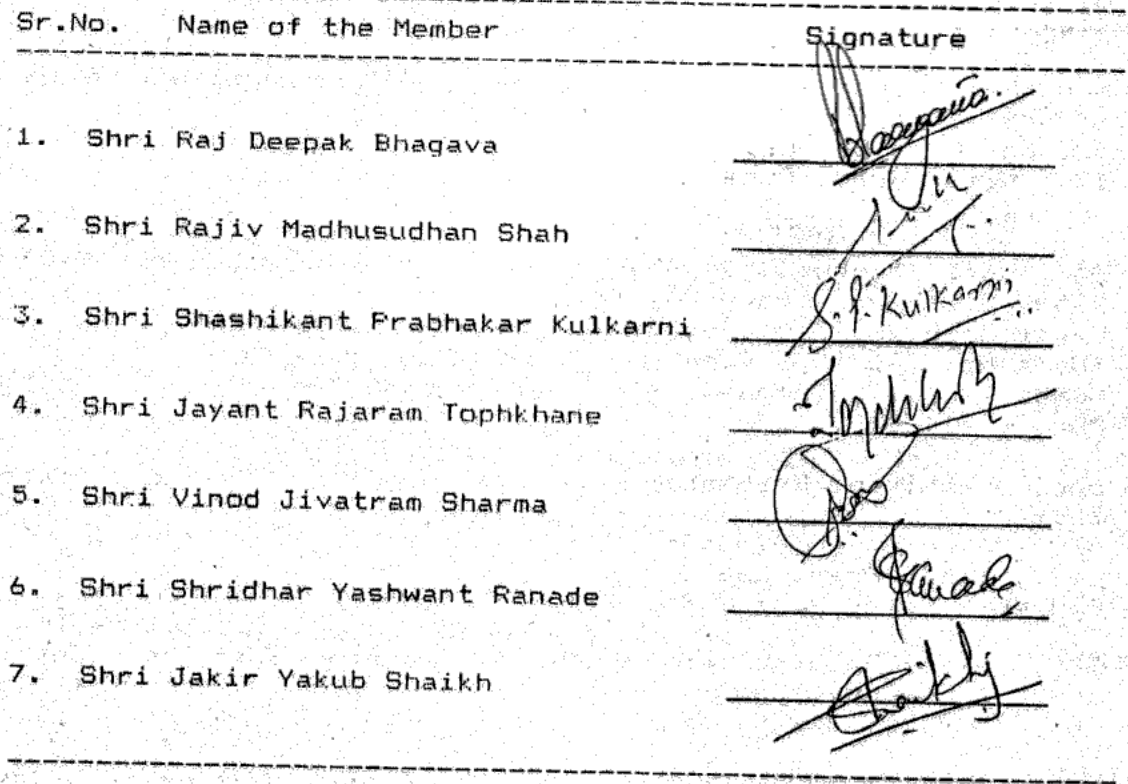 Sr.No. Name of the Member Signature
1. Shri Raj Deepak Bhagava
2. Shri Rajiv Madhusudhan Shah
3. Shri Shashikant Prabhakar Kulkarni S.P. Kulkarni
4. Shri Jayant Rajaram Tophkhane
5. Shri Vinod Jivatram Sharma
6. Shri Shridhar Yashwant Ranade
7. Shri Jakir Yakub Shaikh